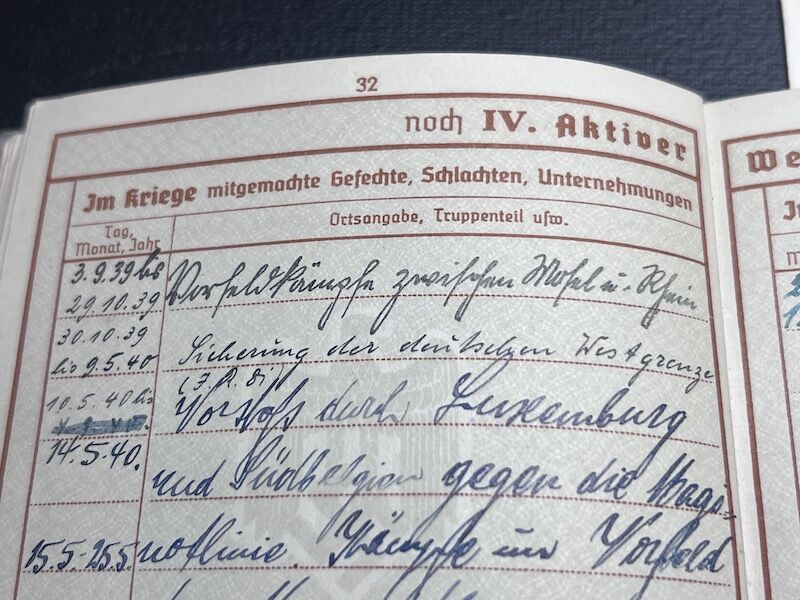 32
noch IV. Aktiver
Im Kriege mitgemachte Gefechte, Schlachten, Unternehmungen
Tag, Monat, Jahr
Ortsangabe, Truppenteil usw.
3.9.39 bis 29.10.39 Vorfeldkämpfe zwischen Mosel u. Rhein
30.10.39 bis 9.5.40 Sicherung der deutschen Westgrenze
10.5.40 bis 14.5.40. Vorstoß durch Luxemburg
und Südbelgien gegen die Magi=
15.5.-25.5. notlinie. Kämpfe im Vorfeld
We